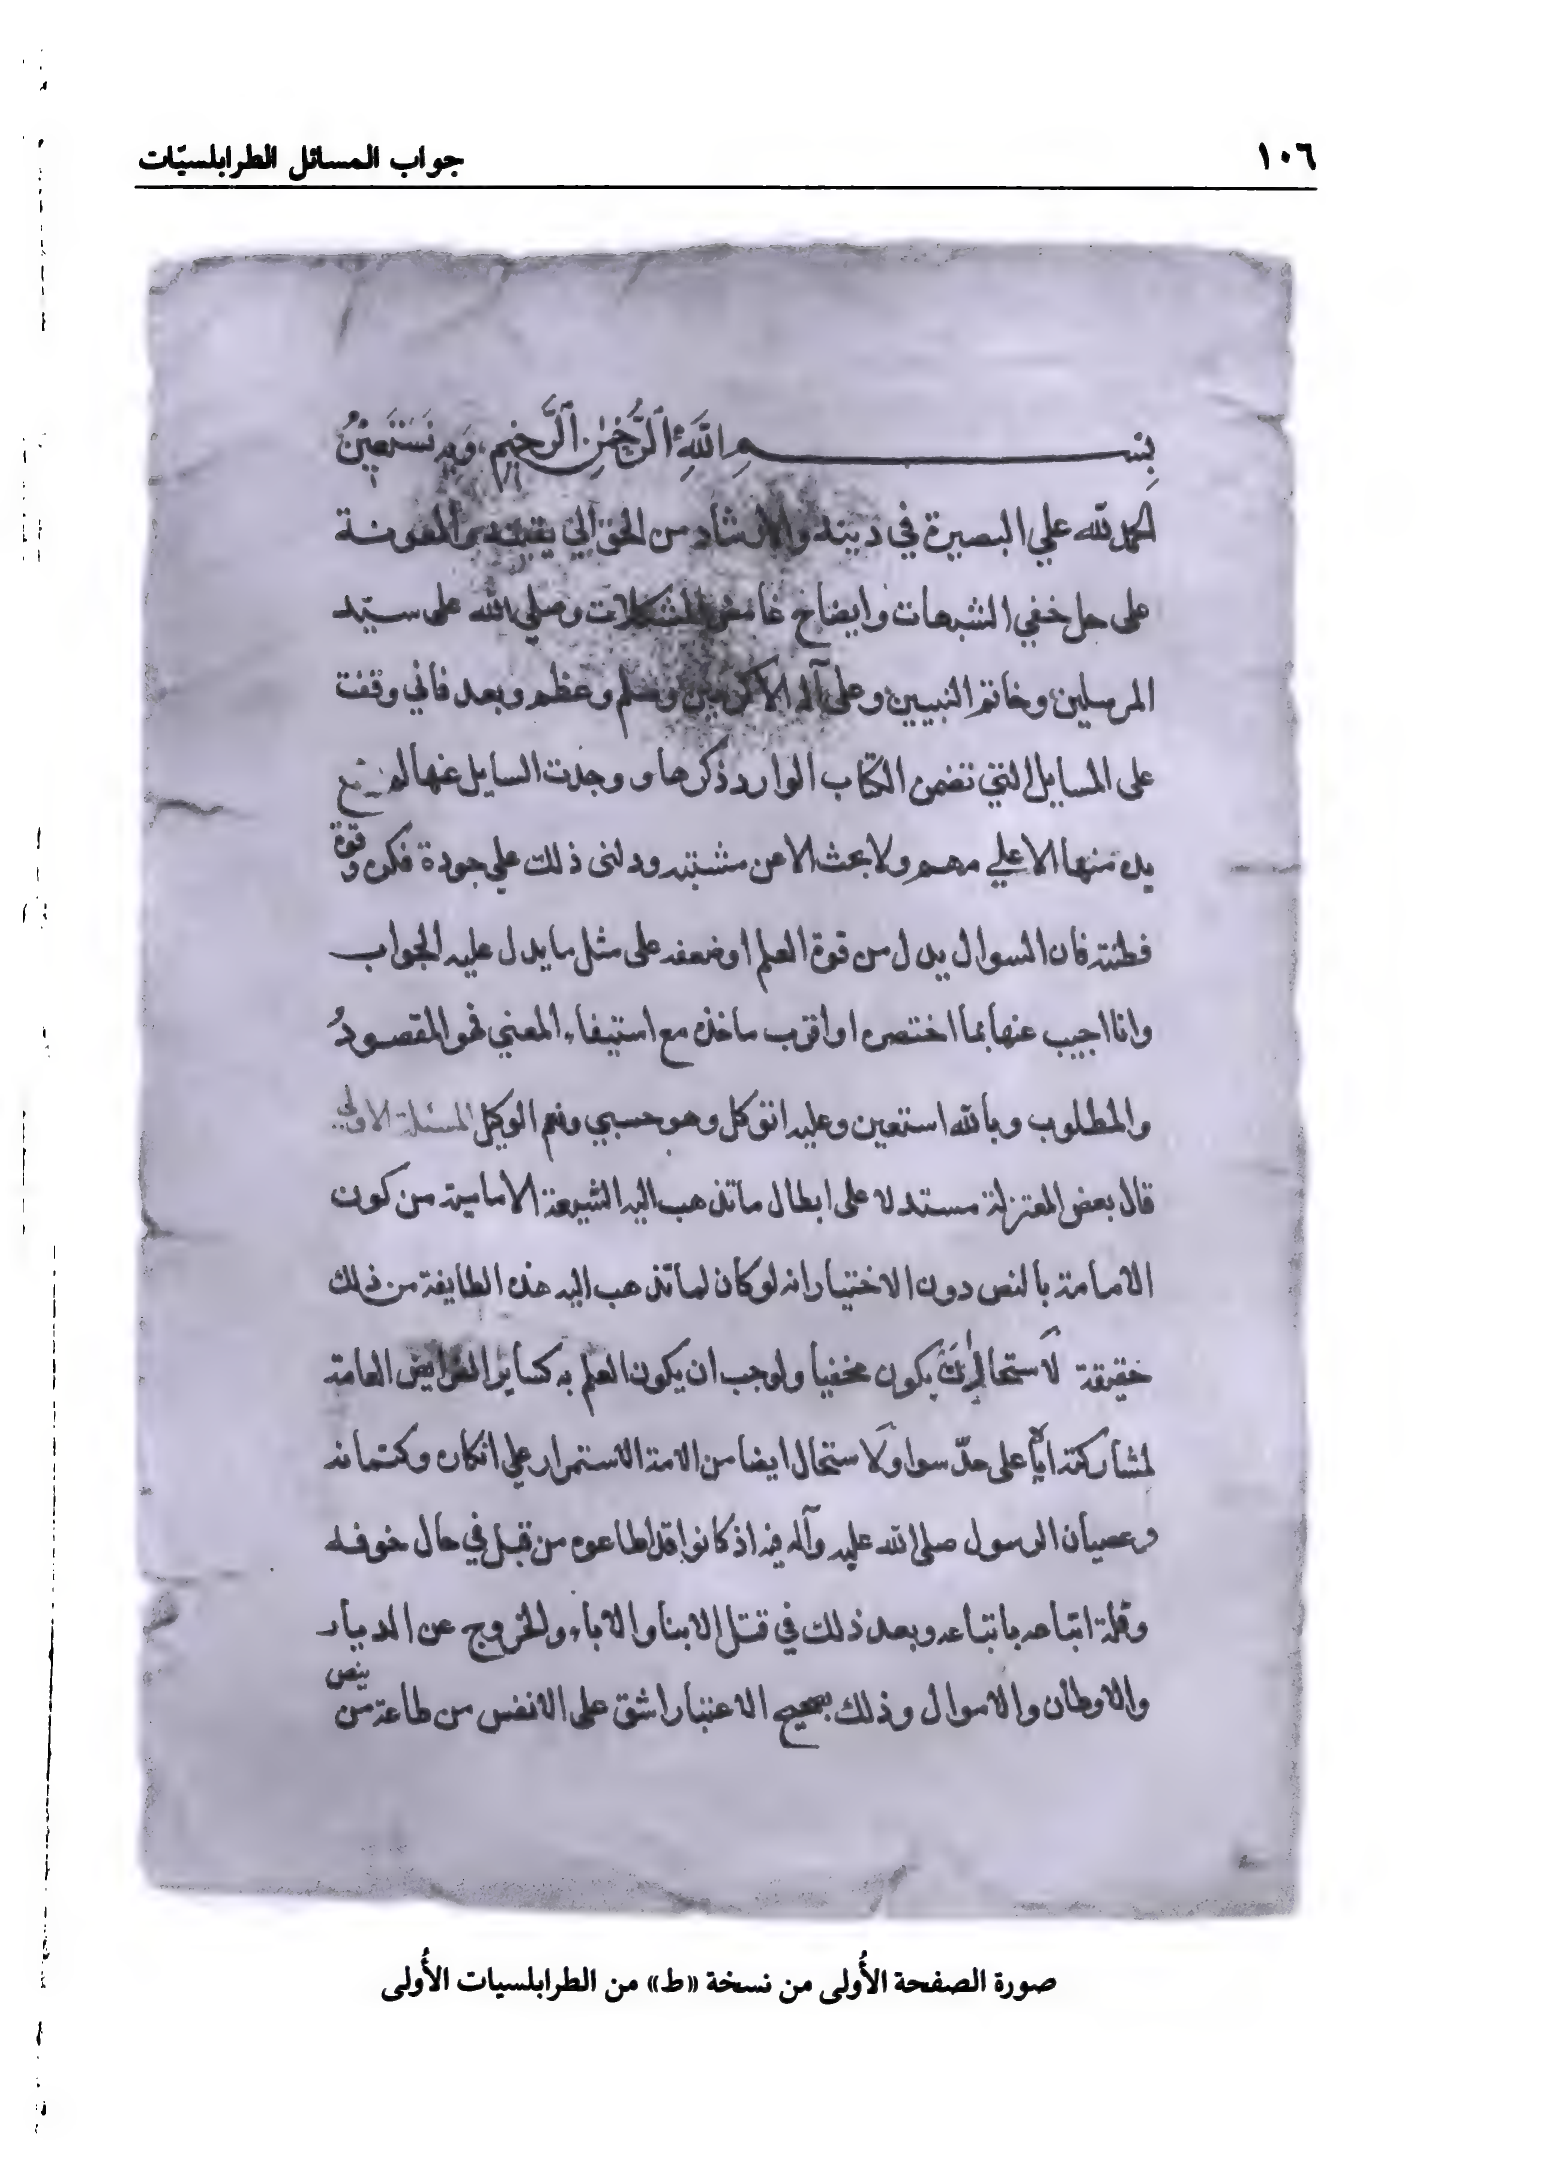 ١٠٦ جواب المسائل الطرابلسيّات
بِسْمِ اللَّهِ الرَّحْمٰنِ الرَّحِيمِ وَبِهِ نَسْتَعِيْنُ
الحمد لله علي البصيرة في دينه والارشاد من الحق الي يقينه والمعونة
على حل خفي الشبهات وايضاح غامض المشكلات وصلي الله على سيّد
المرسلين وخاتم النبيين وعلى آله الاكرمين وسلم وعظم وبعد فاني وقفت
على المسايل التي تضمن الكتاب الوارد ذكرها ووجدت السايل عنها لم يضع
يده منها الا علي مهم ولا بحث الا عن مشتبه ودلنى ذلك علي جودة فكره وقوة
فطنته فان السوال يدل من قوة العلم اوضعفه على مثل ما يدل عليه الجواب
وانا اجيب عنها بما اختصره اواقرب ماخذه مع استيفاء المعني فهو المقصودُ
والمطلوب وبالله استعين وعليه اتوكل وهو حسبي ونعم الوكيل المسئلة الاولي
قال بعض المعتزلة مستدلا على ابطال ما تذهب اليه الشيعة الامامية من كون
الامامة بالنص دون الاختيار انه لوكان لما تذهب اليه هذه الطايفة من ذلك
حقيقة لاستحال ان يكون مخفيا ولوجب ان يكون العلم به كساير الفرايض العامة
لمشاركته اياها على حدّ سوا ولاستحال ايضا من الامة الاستمرار علي انكاره وكتمانه
وعصيان الرسول صلى الله عليه وآله فيه اذ كانوا قد اطاعوه من قبل في حال خوفه
وقلة اتباعه باتباعه وبعد ذلك في قتل الابنا والاباء والخروج عن الديار
والاوطان والاموال وذلك بصحيح الاعتبار اشق على الانفس من طاعة من بنص
صورة الصفحة الأُولى من نسخة «ط» من الطرابلسيات الأُولى